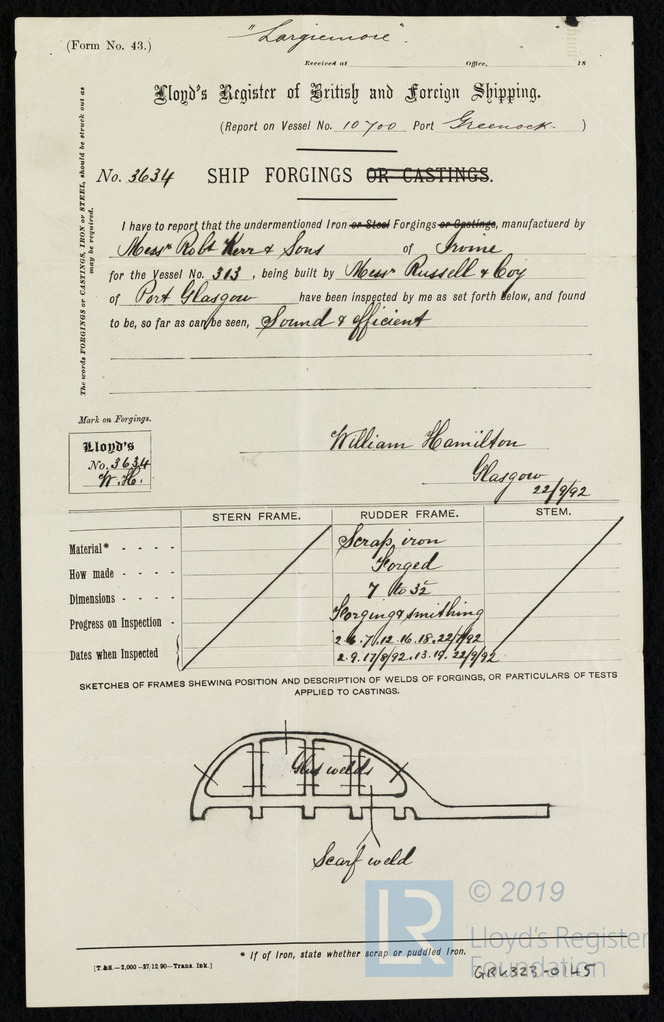 (Form No. 43.)
"Largiemore".
Received at Office, 18
Lloyd's Register of British and Foreign Shipping.
(Report on Vessel No. 10700 Port Greenock. )
No. 3634 SHIP FORGINGS OR CASTINGS.
The words FORGINGS or CASTINGS, IRON or STEEL, should be struck out as
may be required.
I have to report that the undermentioned Iron or Steel Forgings or Castings, manufactuerd by
Messrs Robt Kerr & Sons of Irvine
for the Vessel No. 313, being built by Messrs Russell & Coy
of Port Glasgow have been inspected by me as set forth below, and found
to be, so far as can be seen, Sound & efficient
Mark on Forgings.
Lloyd's
No. 3634
W.H.
William Hamilton
Glasgow
22/9/92
STERN FRAME. RUDDER FRAME. STEM.
Material* - - - - Scrap iron
How made - - - - Forged
Dimensions - - - - 7 to 3½
Progress on Inspection - Forging & smithing
2.6.7.12.16.18.22/7/92
Dates when Inspected 2.9.17/8/92.13.19.22/9/92
SKETCHES OF FRAMES SHEWING POSITION AND DESCRIPTION OF WELDS OF FORGINGS, OR PARTICULARS OF TESTS
APPLIED TO CASTINGS.
Glut welds
Scarf weld
* If of Iron, state whether scrap or puddled iron.
[T.&S.—2,000—27/12/90—Trans. Ink.]
LR
© 2019
Lloyd's Register
Foundation
GRK323-0145